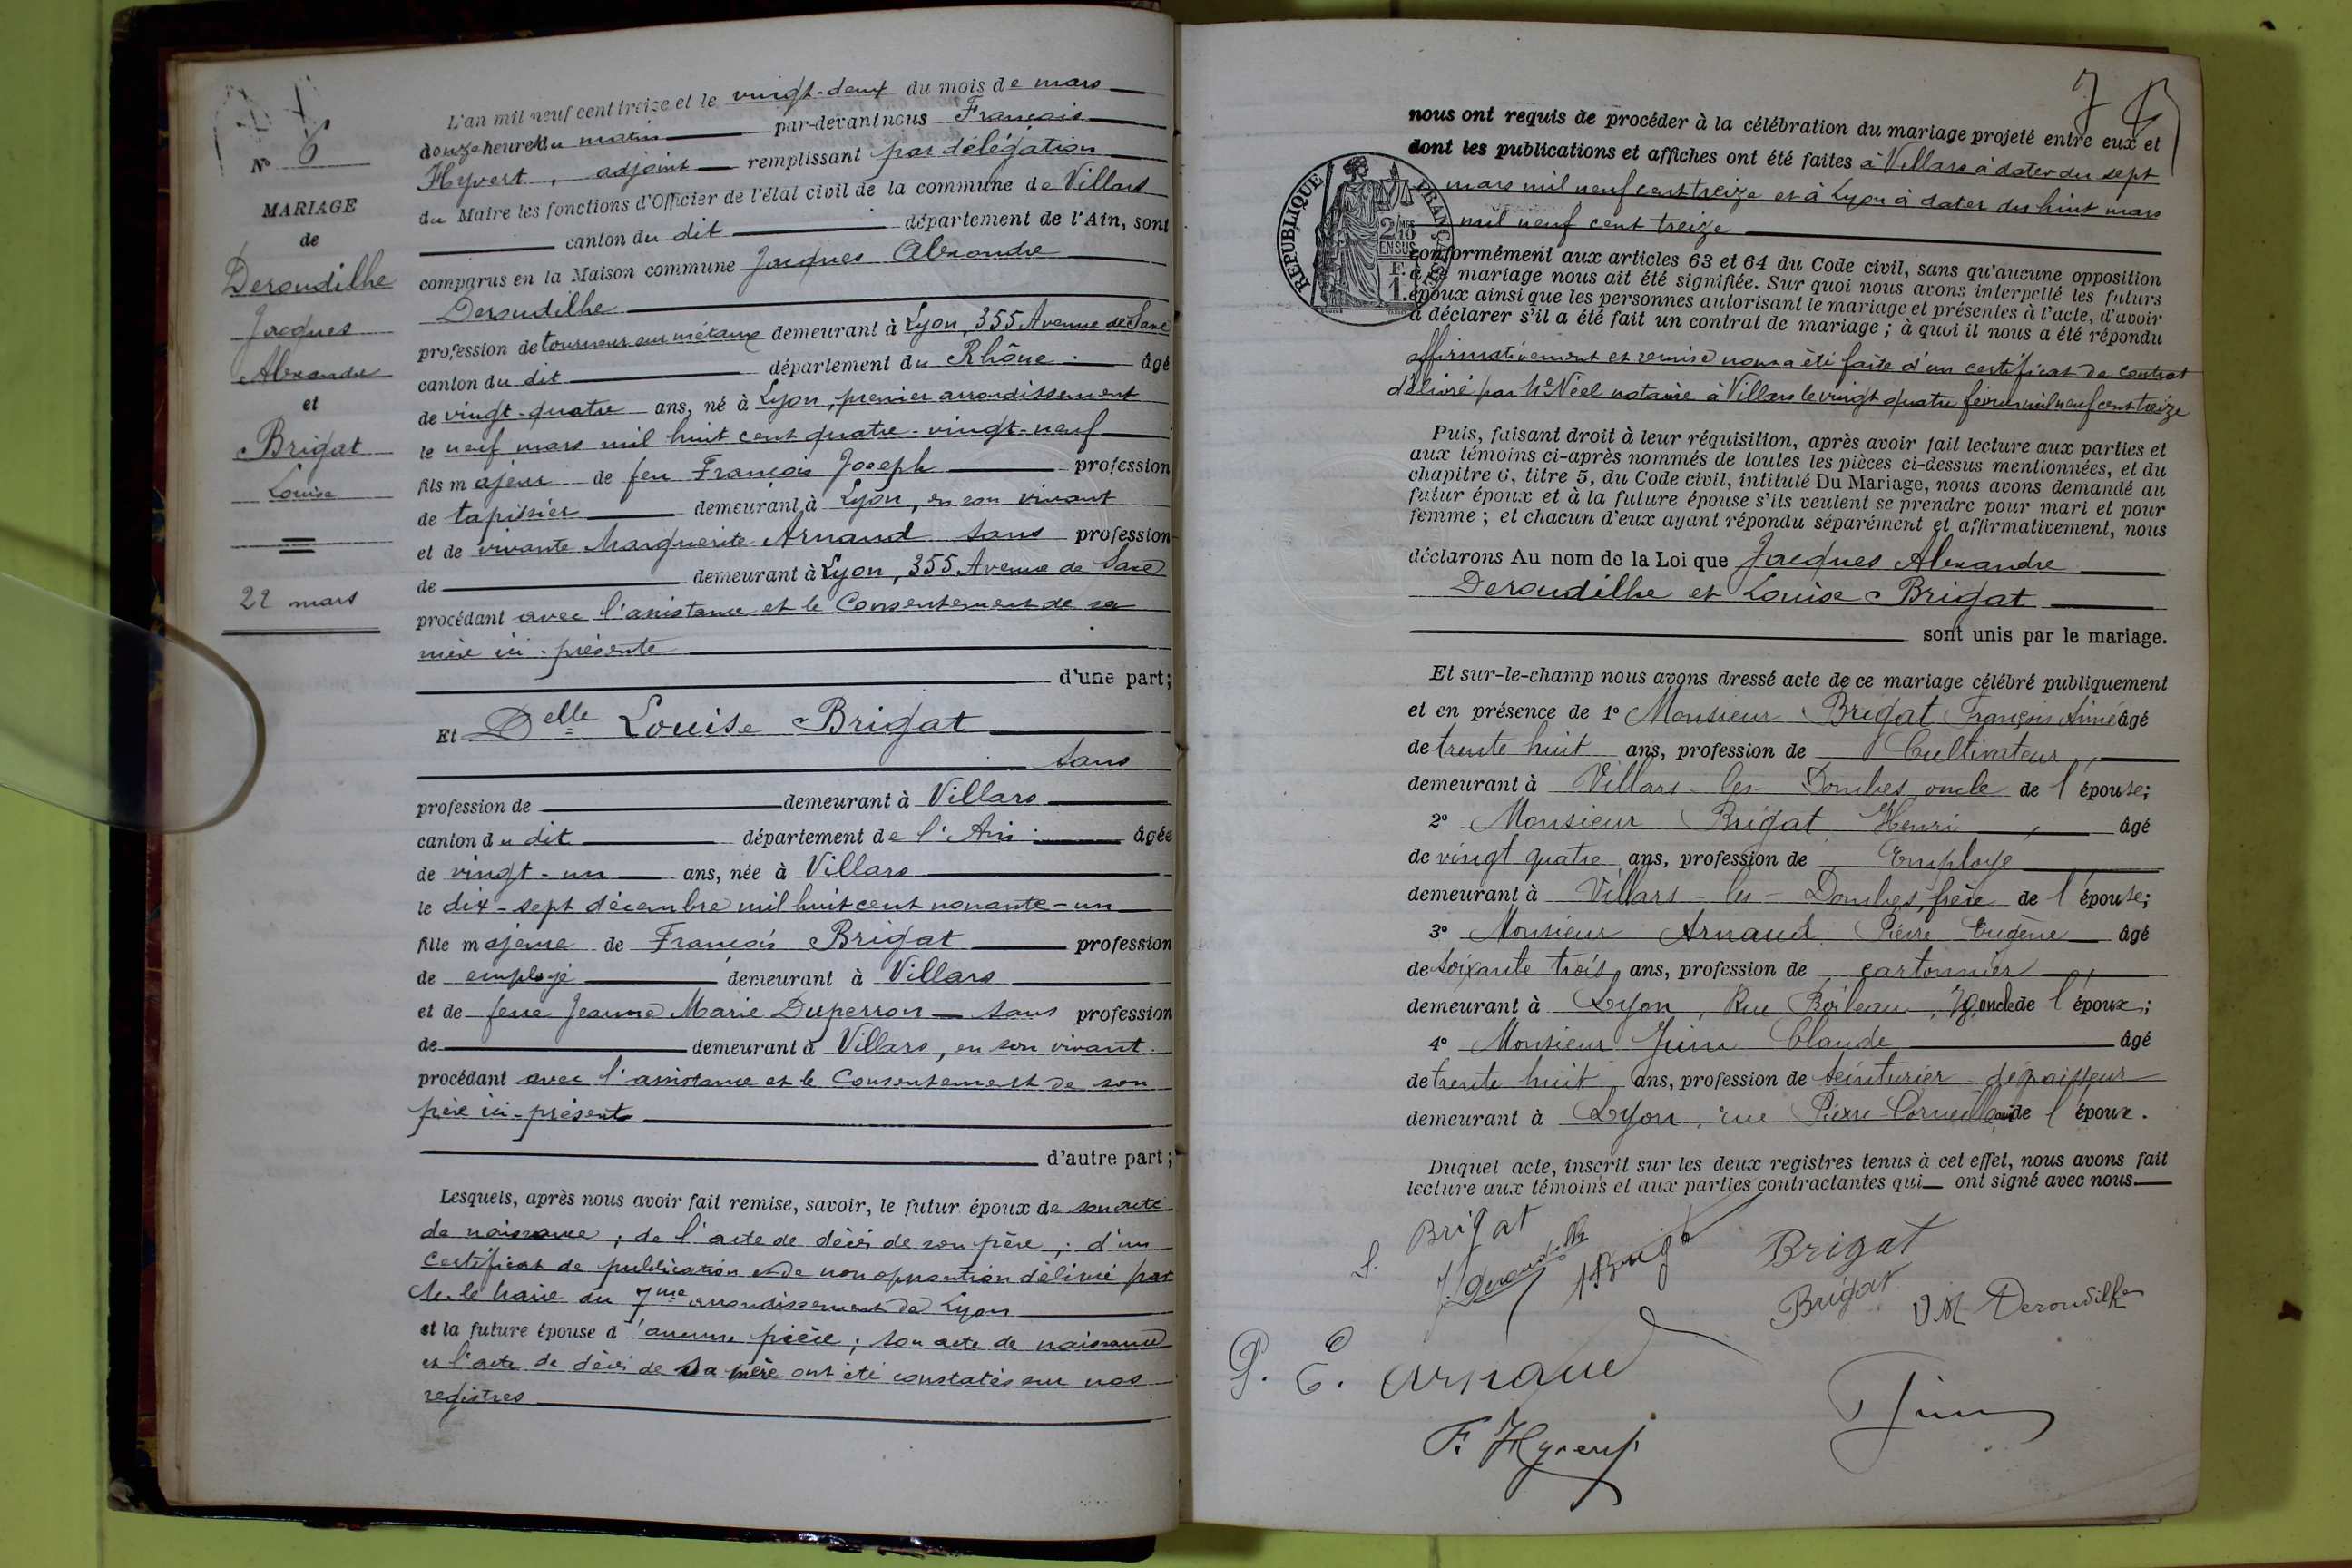 N° 6
MARIAGE
de
Deroudilhe
Jacques
Alexandre
et
Brigat
Louise
22 mars
L'an mil neuf cent treize et le vingt-deux du mois de mars
douze heures du matin par-devant nous François
Hyvert, adjoint remplissant par délégation
du Maire les fonctions d'Officier de l'état civil de la commune de Villars
canton du dit département de l'Ain, sont
comparus en la Maison commune Jacques Alexandre
Deroudilhe
profession de tourneur sur métaux demeurant à Lyon, 355 Avenue de Saxe
canton du dit département du Rhône. âgé
de vingt-quatre ans, né à Lyon, premier arrondissement
le neuf mars mil huit cent quatre-vingt-neuf
fils majeur de feu François Joseph profession
de tapissier demeurant à Lyon, en son vivant
et de vivante Marguerite Arnaud sans profession
de demeurant à Lyon, 355 Avenue de Saxe
procédant avec l'assistance et le Consentement de sa
mère ici-présente
d'une part;
Et Delle Louise Brigat
sans
profession de demeurant à Villars
canton du dit département de l'Ain. âgée
de vingt-un ans, née à Villars
le dix-sept décembre mil huit cent nonante-un
fille majeure de François Brigat profession
de employé demeurant à Villars
et de feue Jeanne Marie Duperron sans profession
de demeurant à Villars, en son vivant.
procédant avec l'assistance et le Consentement de son
père ici-présent
d'autre part;
Lesquels, après nous avoir fait remise, savoir, le futur époux de son acte
de naissance; de l'acte de décès de son père; d'un
certificat de publication et de non opposition délivré par
M. le Maire du 7me arrondissement de Lyon
et la future épouse d'aucune pièce; son acte de naissance
et l'acte de décès de sa mère ont été constatés sur nos
registres
7
nous ont requis de procéder à la célébration du mariage projeté entre eux et
dont les publications et affiches ont été faites à Villars à dater du sept
mars mil neuf cent treize et à Lyon à dater du huit mars
mil neuf cent treize
RÉPUBLIQUE FRANÇAISE
2/10 EN SUS
F.
1.
conformément aux articles 63 et 64 du Code civil, sans qu'aucune opposition
à ce mariage nous ait été signifiée. Sur quoi nous avons interpellé les futurs
époux ainsi que les personnes autorisant le mariage et présentes à l'acte, d'avoir
à déclarer s'il a été fait un contrat de mariage; à quoi il nous a été répondu
affirmativement et remise nous a été faite d'un certificat de contrat
délivré par Me Néel notaire à Villars le vingt quatre février mil neuf cent treize
Puis, faisant droit à leur réquisition, après avoir fait lecture aux parties et
aux témoins ci-après nommés de toutes les pièces ci-dessus mentionnées, et du
chapitre 6, titre 5, du Code civil, intitulé Du Mariage, nous avons demandé au
futur époux et à la future épouse s'ils veulent se prendre pour mari et pour
femme; et chacun d'eux ayant répondu séparément et affirmativement, nous
déclarons Au nom de la Loi que Jacques Alexandre
Deroudilhe et Louise Brigat
sont unis par le mariage.
Et sur-le-champ nous avons dressé acte de ce mariage célébré publiquement
et en présence de 1° Monsieur Brigat François Aimé âgé
de trente huit ans, profession de Cultivateur,
demeurant à Villars-les-Dombes, oncle de l'épouse;
2° Monsieur Brigat Henri, âgé
de vingt quatre ans, profession de Employé
demeurant à Villars-les-Dombes, frère de l'épouse;
3° Monsieur Arnaud Pierre Eugène âgé
de soixante trois, ans, profession de cartonnier
demeurant à Lyon, Rue Boileau, oncle de l'époux;
4° Monsieur Juin Claude âgé
de trente huit ans, profession de teinturier dégraisseur
demeurant à Lyon, rue Pierre Corneille, ami de l'époux.
Duquel acte, inscrit sur les deux registres tenus à cet effet, nous avons fait
lecture aux témoins et aux parties contractantes qui ont signé avec nous
L. Brigat
J. Deroudilhe
Brigat
Brigat
Brigat
V. M. Deroudilhe
P. E. Arnaud
Juin
F. Hyvert